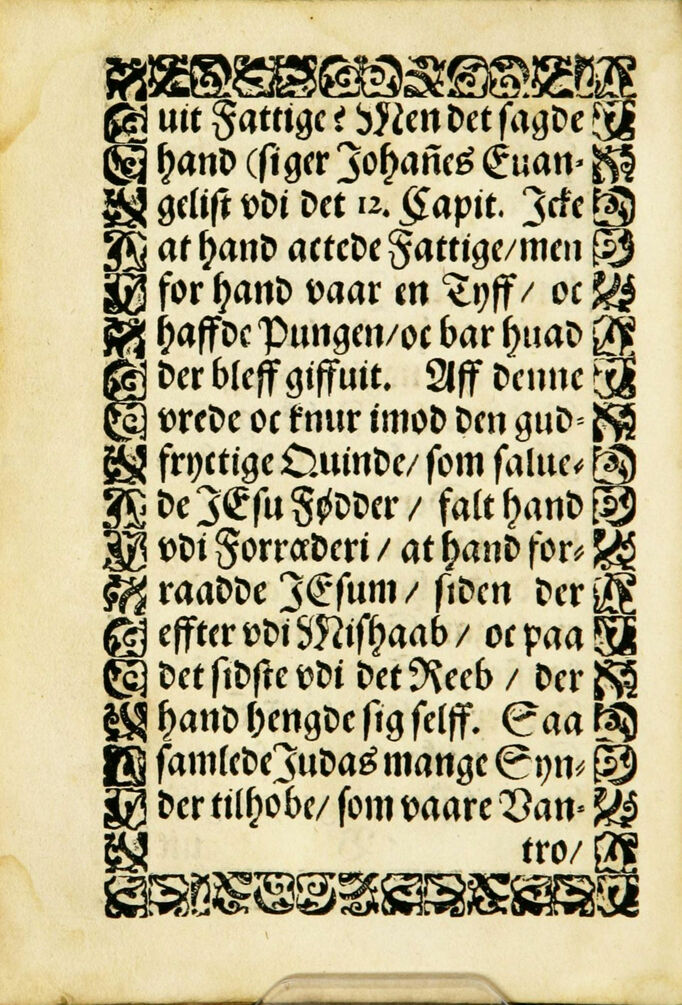 uit Fattige? Men det sagde
hand (siger Johañes Euan-
gelist vdi det 12. Capit. Icke
at hand actede Fattige/men
for hand vaar en Tyff/ oc
haffde Pungen/oc bar huad
der bleff giffuit. Aff denne
vrede oc knur imod den gud-
fryctige Quinde/ som salue-
de JEsu Fødder / falt hand
vdi Forræderi / at hand for-
raadde JEsum / siden der
effter vdi Mishaab / oc paa
det sidste vdi det Reeb / der
hand hengde sig selff. Saa
samlede Judas mange Syn-
der tilhobe/ som vaare Van-
tro/